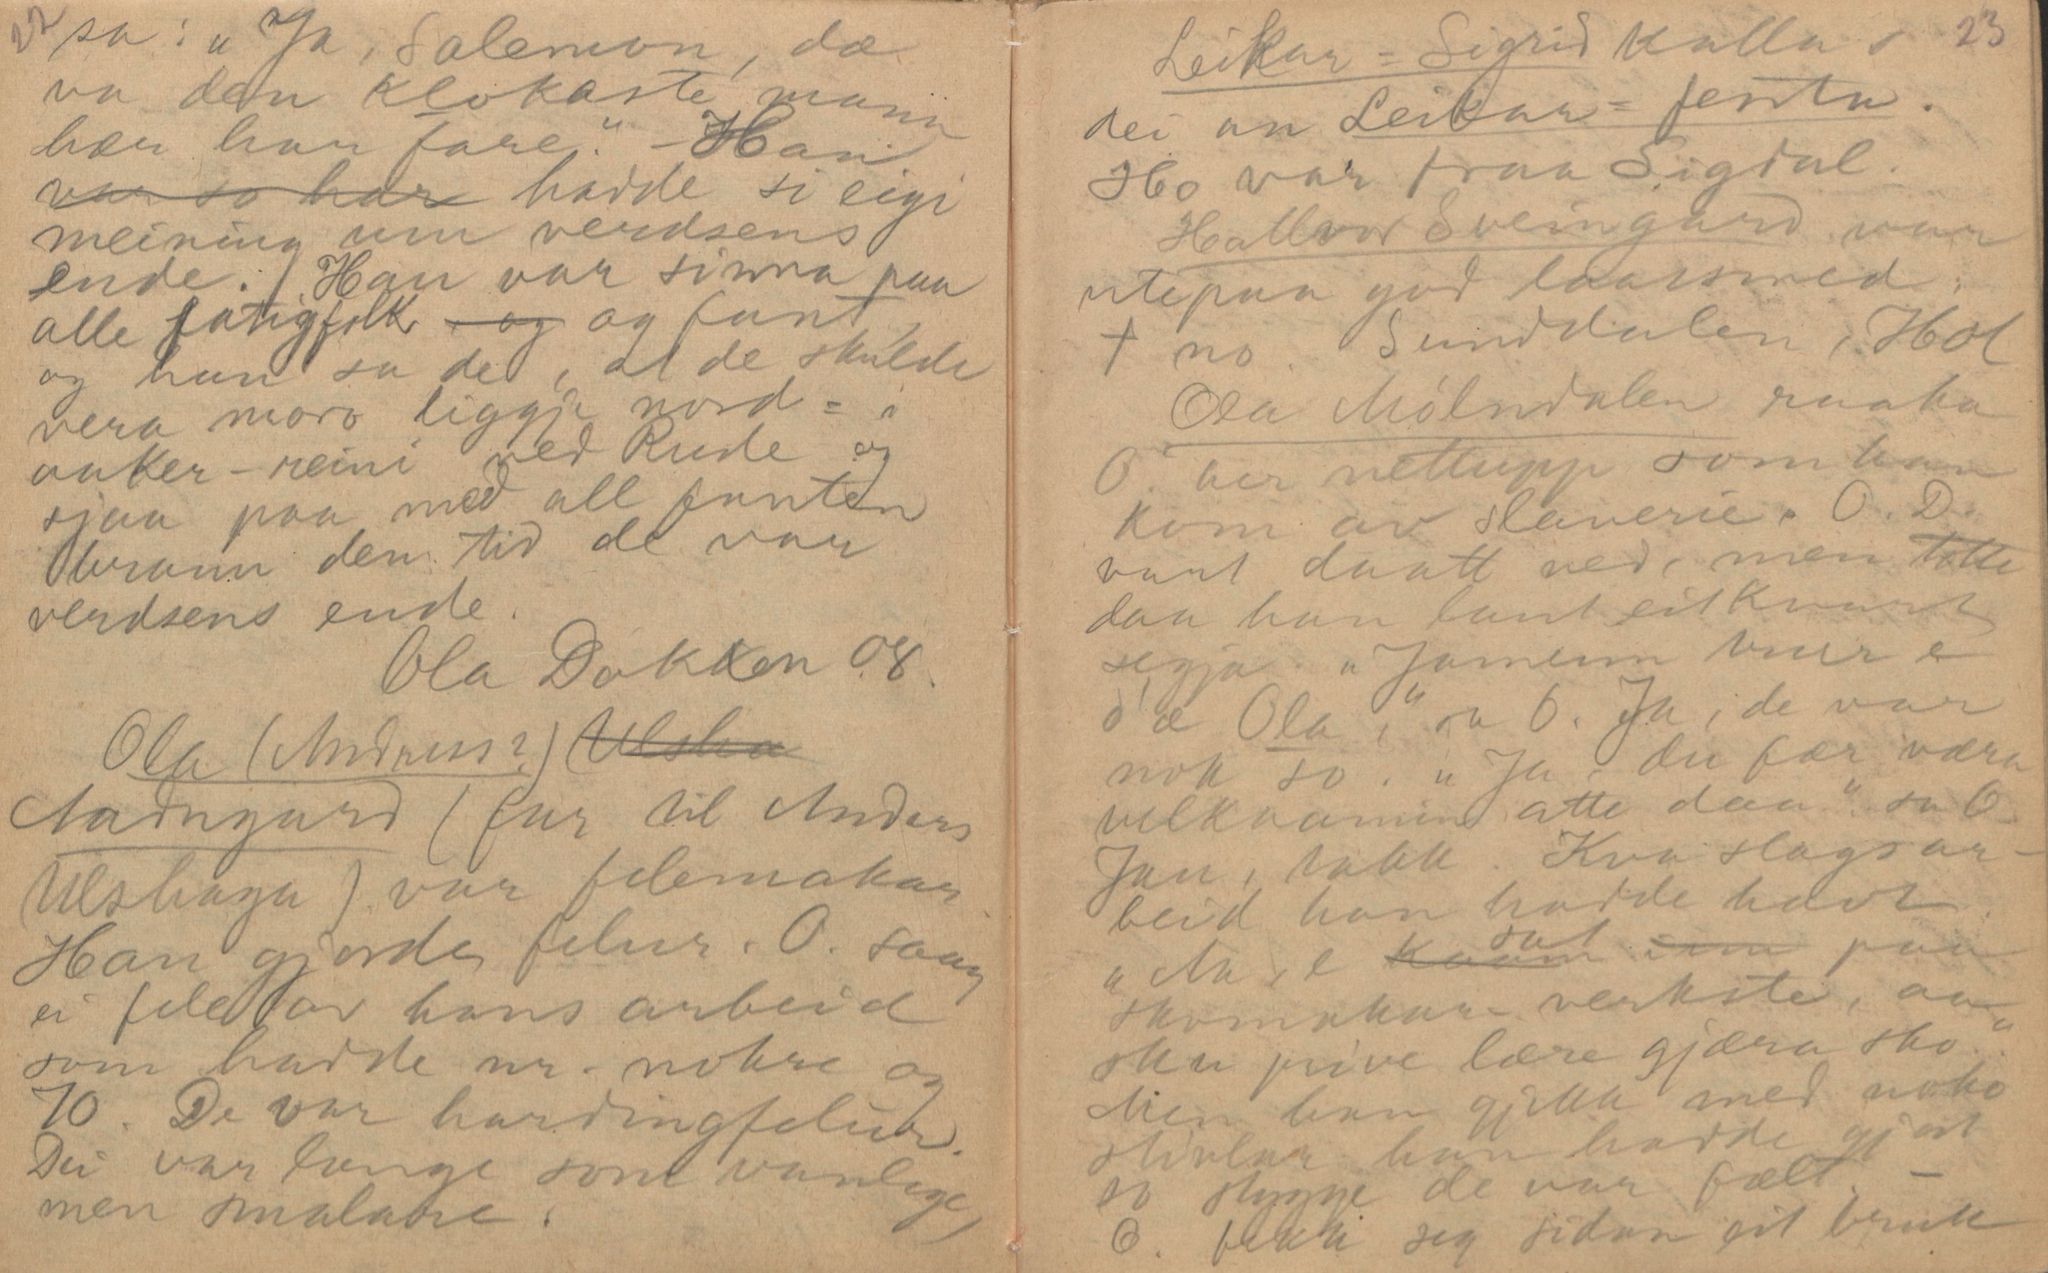 22
sa: „Ja, Salemon, dæ
va den klokaste mann
hær har fare.“ – Han
var so har hadde si eigi
meining um verdsens
ende. / Han var sinna paa
alle fatigfolk og og fant,
og han sa de, at de skulde
vera moro liggja nord- i
aaker-reini ved Rude og
sjaa paa med all fanten
brann den tid de var
verdsens ende.
Ola Dokken 08.
Ola (Andress?) Ulsha
Aadngard (far til Anders
Ulshaga) var felemakar.
Han gjorde felur. O. saag
ei fele av hans arbeid
som hadde nr. nokre og
70. De var hardingfelur.
Dei var lange som vanlege,
men smalare.
23
Leikar-Sigrid kalla
dei an Leikar-fenta.
Ho var fraa Sigdal.
Hallvor Sveingard var
utepaa god laarsmed.
† no. Sunddalen, Hol
Ola Mølndalen raaka
O. her nettupp som han
kom av slaverie. O. D.
vart daatt ved, men totte
daa han laut eitkvart
segja. „Jamenn trur e
d'æ Ola,“ sa O. Ja, de var
nok so. „Ja, du fær væra
velkaamin atte daa“ sa O.
Jau, takk. Kva slags ar-
beid han hadde havt.
„Aa, e kaam sat inn paa
skomakar-verkste, aa
sku prive lære gjæra sko.“
Men han gjekk med noko
stivlar han hadde gjort
so stygge de var fælt. –
O. fekk seg sidan eit bruk